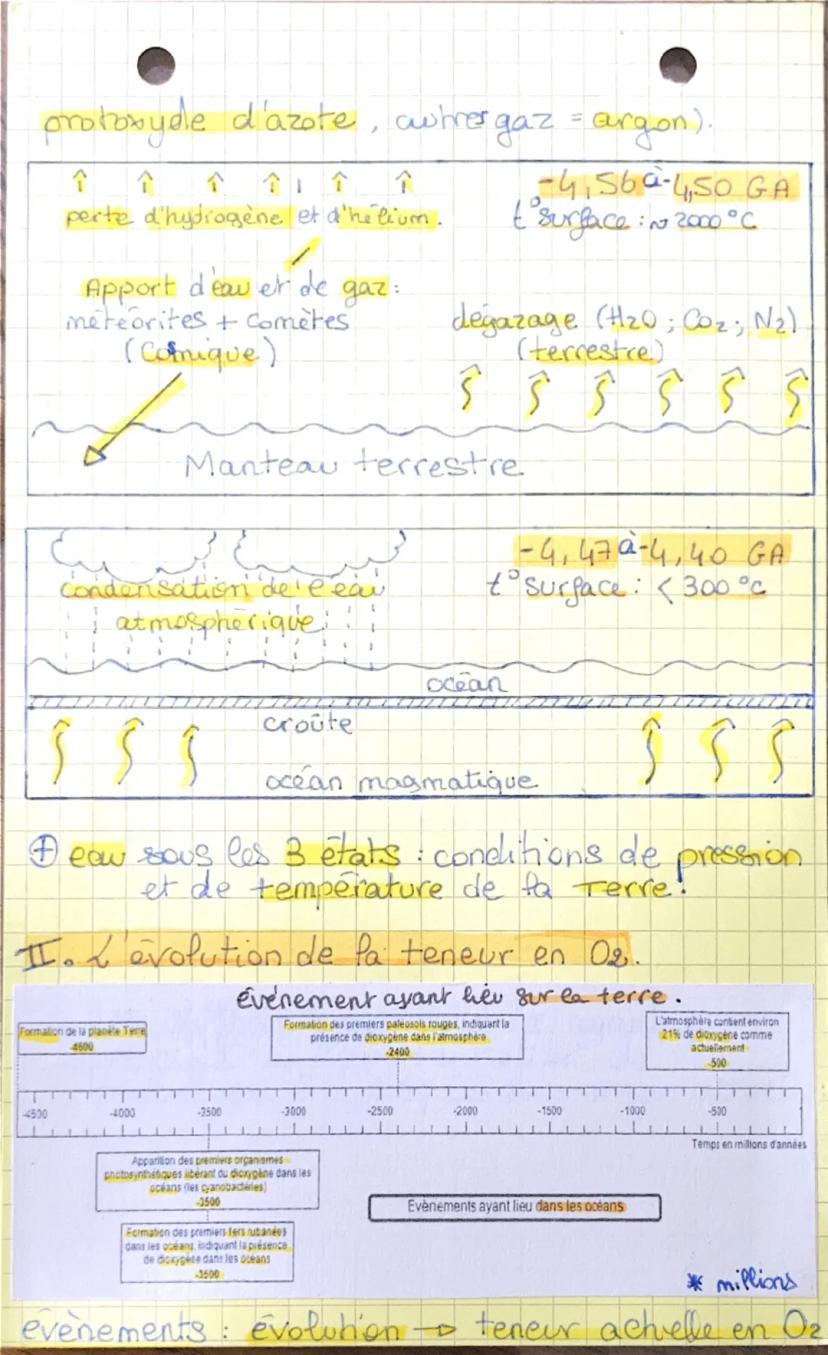 protoxyde d'azote, autres gaz = argon).
-4,56 à -4,50 GA
perte d'hydrogène et d'hélium.
t° surface : ~ 2000 °C
Apport d'eau et de gaz :
météorites + comètes
(Cosmique)
dégazage (H2O ; CO2 ; N2)
(terrestre)
Manteau terrestre
-4,47 à -4,40 GA
t° surface : < 300 °C
condensation de l'eau
atmosphérique
océan
croûte
océan magmatique
⊕ eau sous les 3 états : conditions de pression
et de température de la Terre !
II. L'évolution de la teneur en O2.
Événement ayant lieu sur la terre.
Formation de la planète Terre
-4600
Formation des premiers paléosols rouges, indiquant la
présence de dioxygène dans l'atmosphère
-2400
L'atmosphère contient environ
21% de dioxygène comme
actuellement
-500
-4500 -4000 -3500 -3000 -2500 -2000 -1500 -1000 -500
Temps en millions d'années
Apparition des premiers organismes
photosynthétiques libérant du dioxygène dans les
océans (les cyanobactéries)
-3500
Evènements ayant lieu dans les océans
Formation des premiers fers rubanées
dans les océans, indiquant la présence
de dioxygène dans les océans
-3500
* millions
évènements : évolution → teneur actuelle en O2